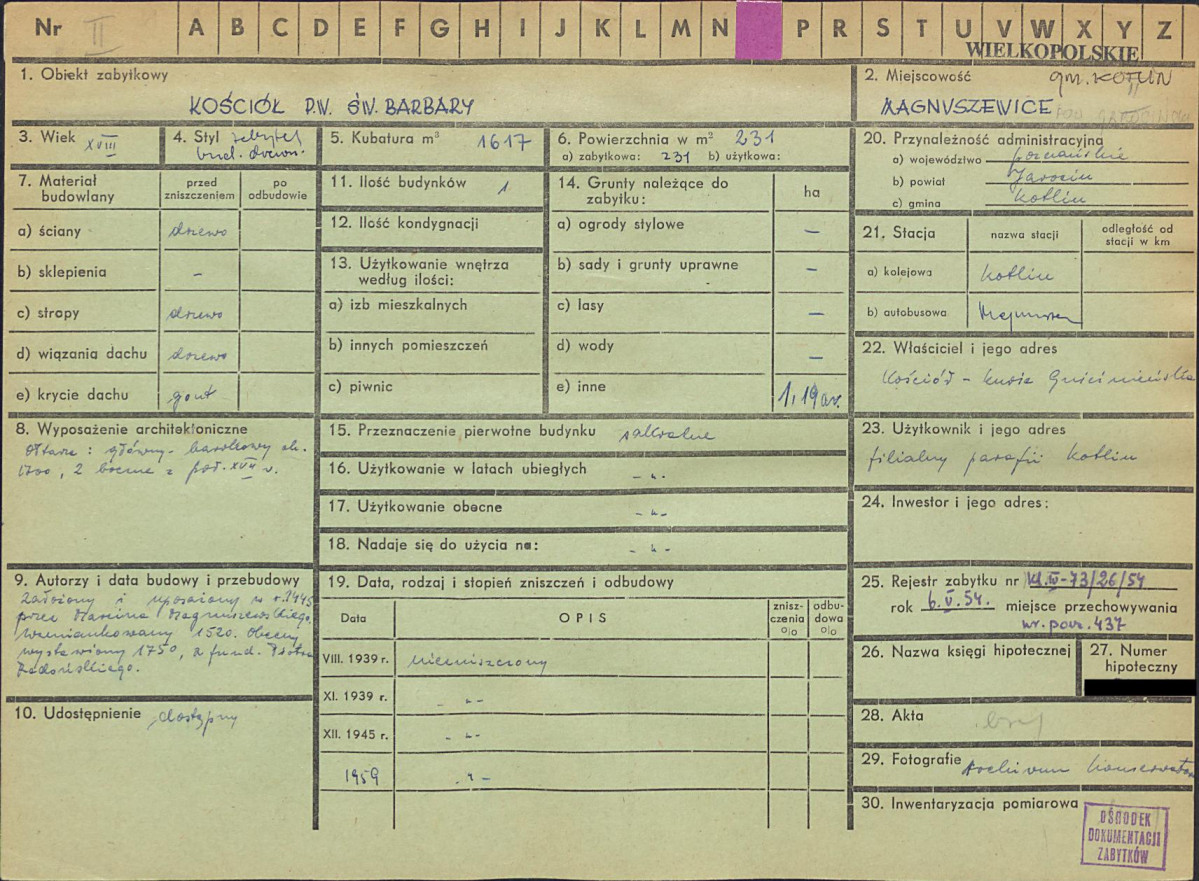 Nr II A B C D E F G H I J K L M N P R S T U V W X Y Z
WIELKOPOLSKIE
1. Obiekt zabytkowy
KOŚCIÓŁ P.W. ŚW. BARBARY
2. Miejscowość gm. KOTLIN
MAGNUSZEWICE
3. Wiek XVIII
4. Styl zabytek
bud. drewn.
5. Kubatura m³ 1617
6. Powierzchnia w m² 231
a) zabytkowa: 231 b) użytkowa:
7. Materiał budowlany
przed zniszczeniem
po odbudowie
a) ściany drzewo
b) sklepienia -
c) stropy drzewo
d) wiązania dachu drzewo
e) krycie dachu gont
8. Wyposażenie architektoniczne
Ołtarze: główny barokowy ok.
1700, 2 boczne z poł. XVII w.
9. Autorzy i data budowy i przebudowy
Założony i uposażony w r. 1445
przez Marcina Magnuszewskiego,
wzmiankowany 1520. Obecny
wystawiony 1750, z fund. Piotra
Radońskiego.
10. Udostępnienie dostępny
11. Ilość budynków 1
12. Ilość kondygnacji
13. Użytkowanie wnętrza
według ilości:
a) izb mieszkalnych
b) innych pomieszczeń
c) piwnic
14. Grunty należące do
zabytku:
ha
a) ogrody stylowe —
b) sady i grunty uprawne —
c) lasy —
d) wody —
e) inne 1,19 ar.
15. Przeznaczenie pierwotne budynku sakralne
16. Użytkowanie w latach ubiegłych - " -
17. Użytkowanie obecne - " -
18. Nadaje się do użycia na: - " -
19. Data, rodzaj i stopień zniszczeń i odbudowy
Data
OPIS
znisz-
czenia
%
odbu-
dowa
%
VIII. 1939 r. niezniszczony
XI. 1939 r. - " -
XII. 1945 r. - " -
1959 - " -
20. Przynależność administracyjna
a) województwo poznańskie
b) powiat Jarocin
c) gmina Kotlin
21. Stacja
nazwa stacji
odległość od
stacji w km
a) kolejowa Kotlin
b) autobusowa
22. Właściciel i jego adres
Kościół - kuria Gnieźnieńska
23. Użytkownik i jego adres
filialny parafii Kotlin
24. Inwestor i jego adres:
25. Rejestr zabytku nr kl.IV-73/26/54
rok 6.V.54. miejsce przechowywania
nr. powr. 437
26. Nazwa księgi hipotecznej
27. Numer
hipoteczny
28. Akta brak
29. Fotografie Archiwum Konserwatora
30. Inwentaryzacja pomiarowa
OŚRODEK
DOKUMENTACJI
ZABYTKÓW